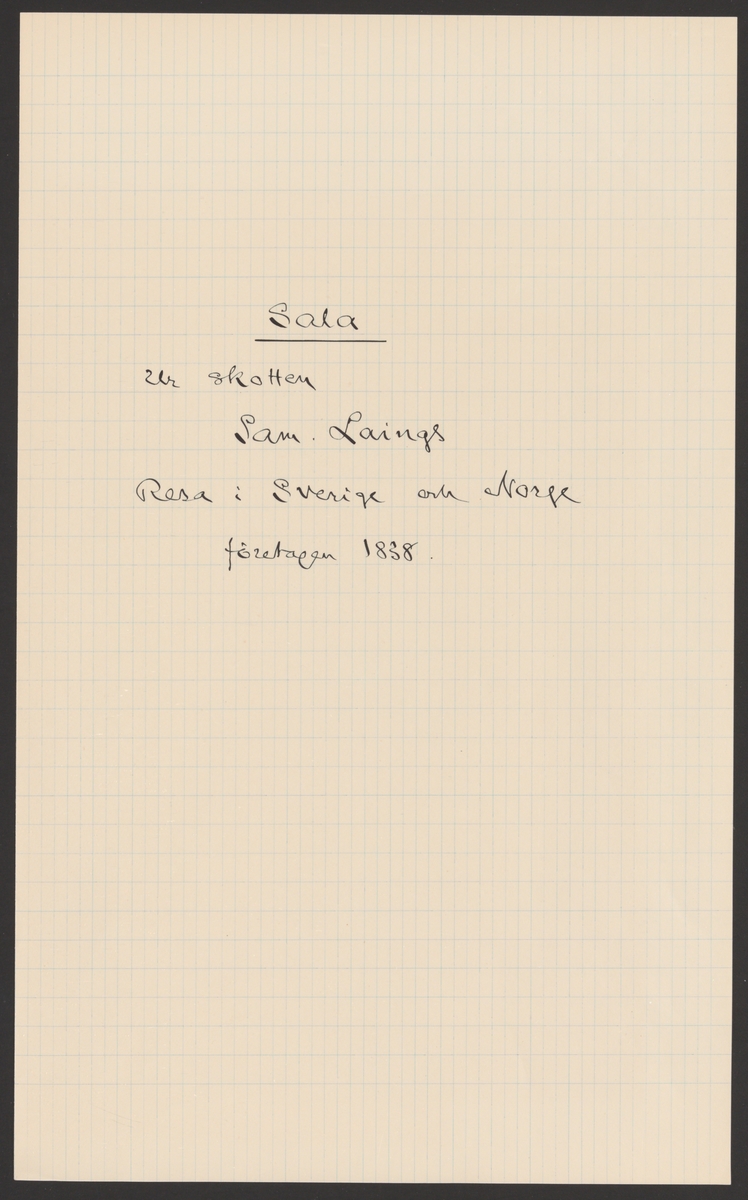 Sala
Ur skotten
Sam. Laings
Resa i Sverige och Norge
företagen 1838.